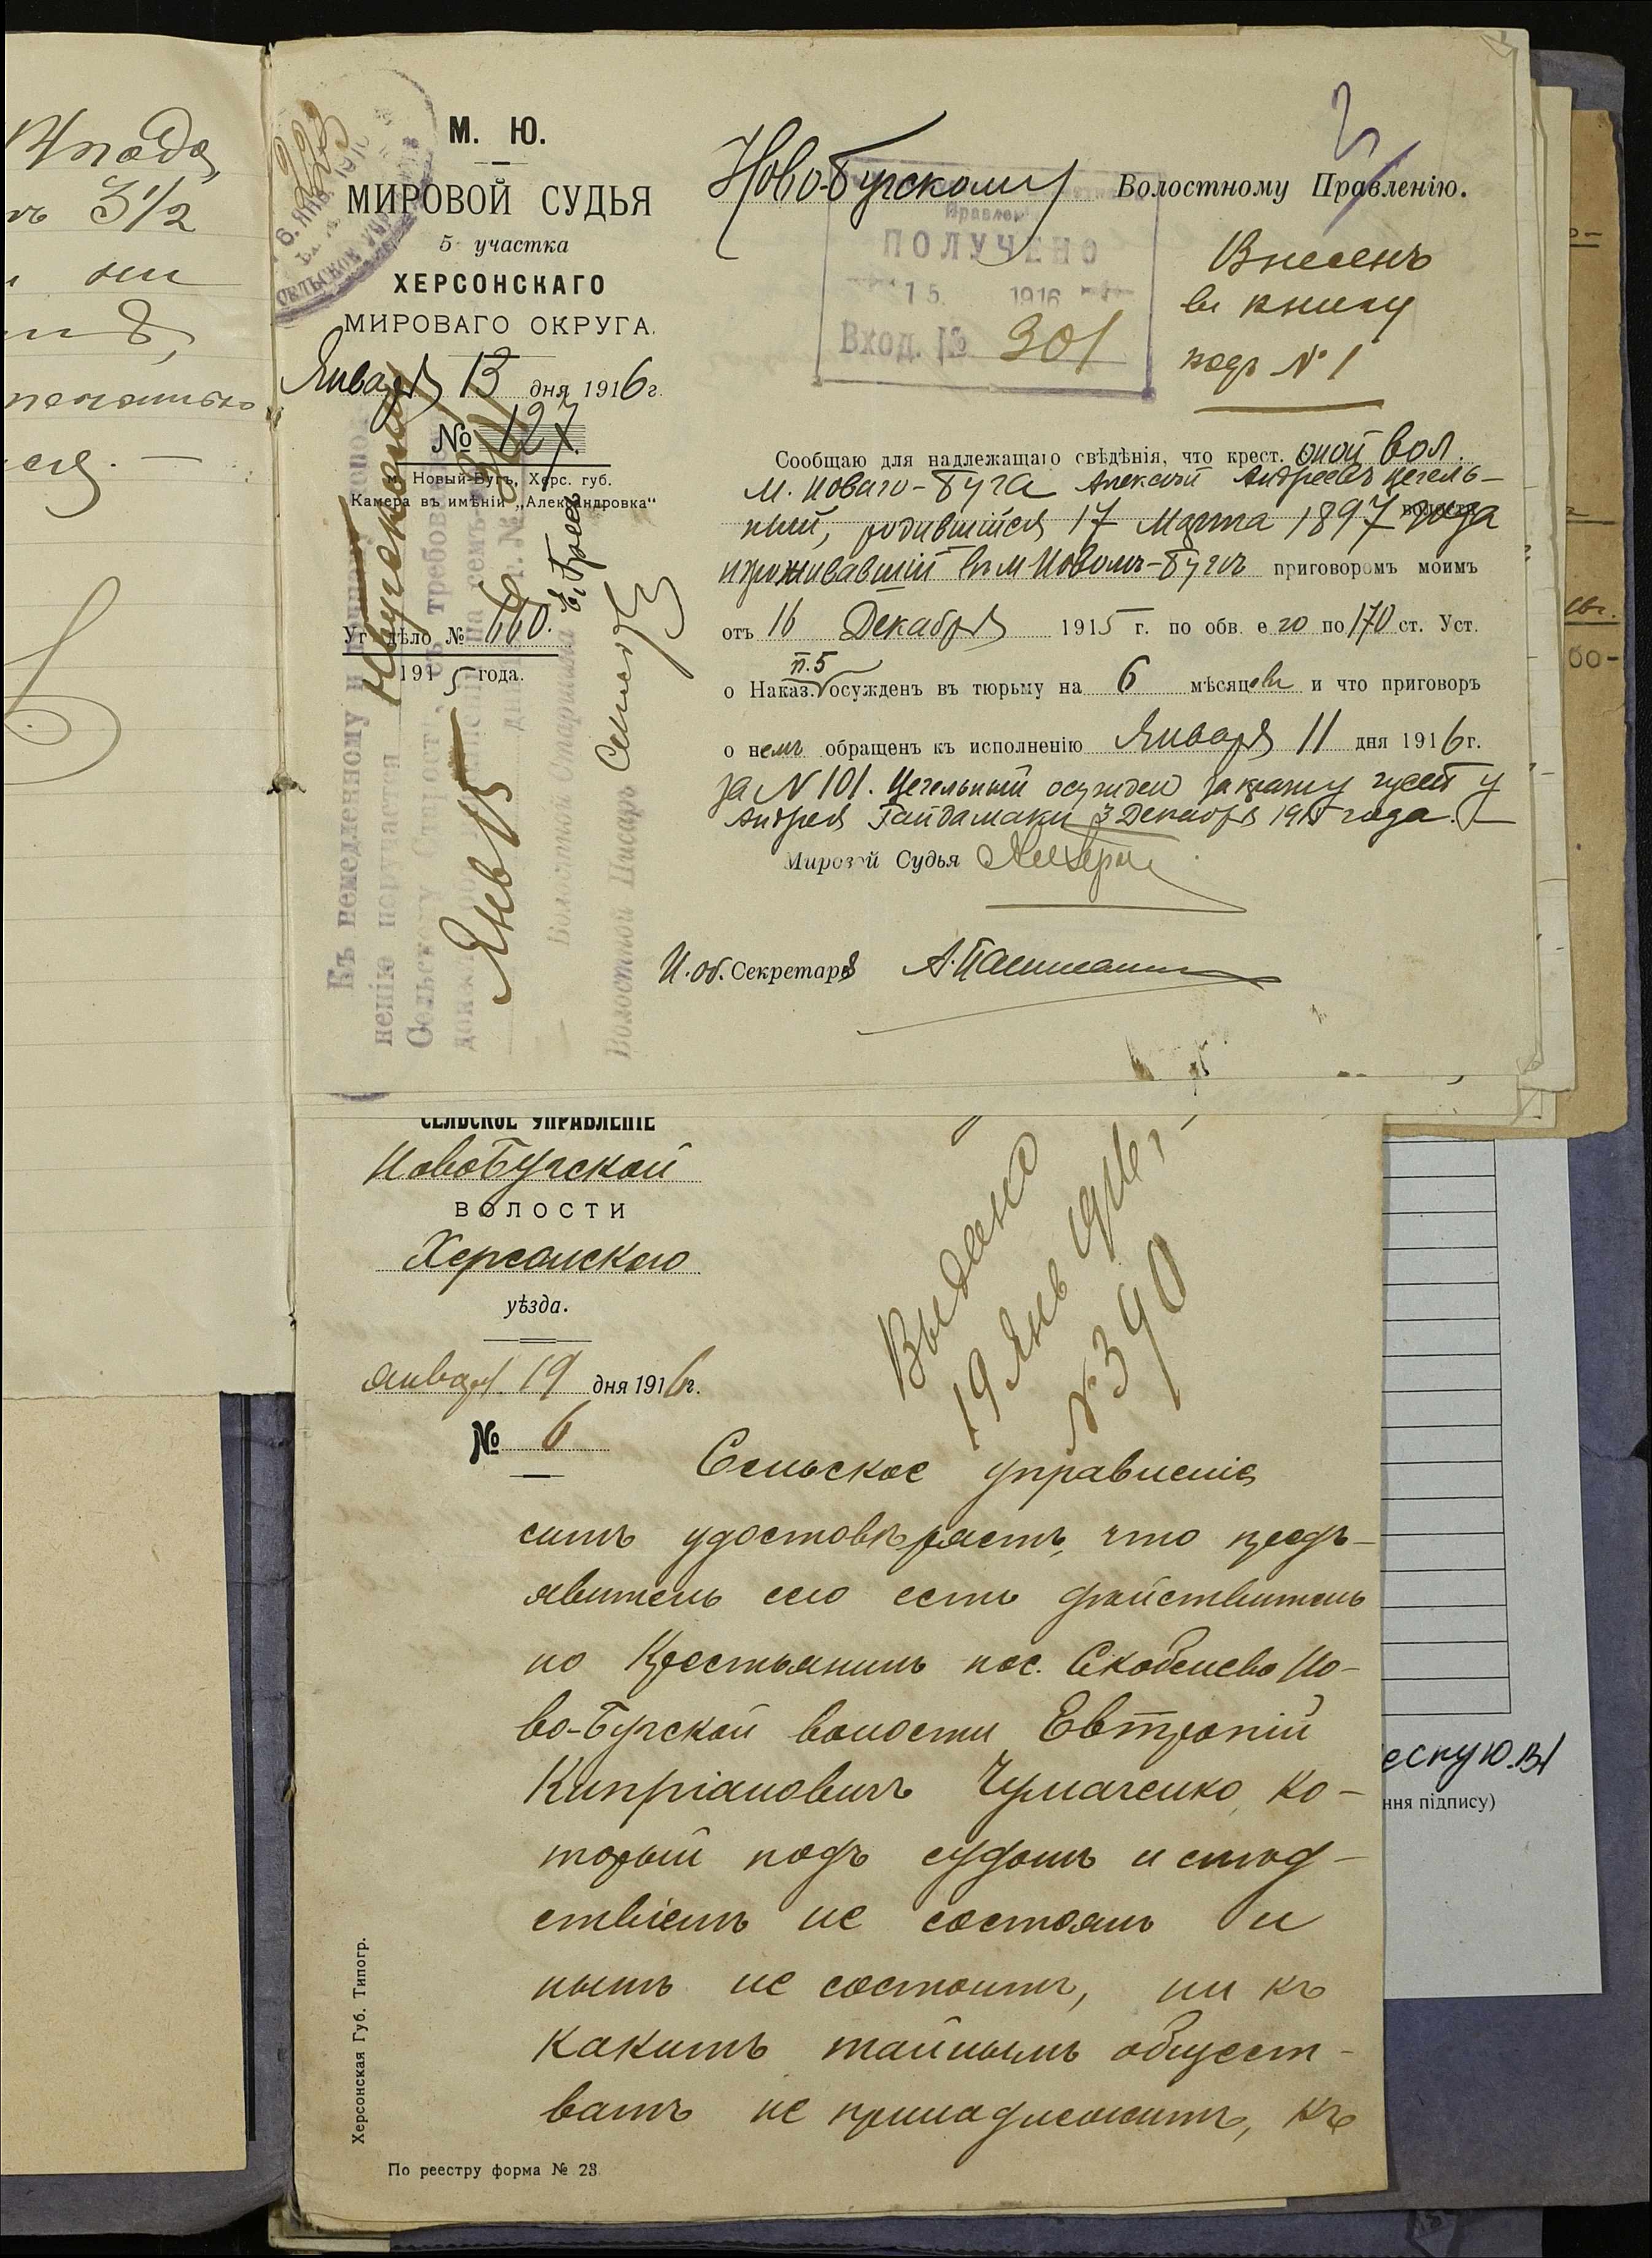 Владо
3½
они
печатью
ся. —
М. Ю.
МИРОВОЙ СУДЬЯ
5 участка
ХЕРСОНСКАГО
МИРОВАГО ОКРУГА.
Января 13 дня 1916 г.
№ 127
м. Новый-Бугъ, Херс. губ.
Камера въ имѣніи „Александровка“
Уг дѣло № 660.
1915 года.
223
6. ЯНВ. 1916
СЕЛЬСКОЕ
Къ немедленному и
ненію поручается
Сельскому Старостѣ
требов
Янв 15
Волостной Старшина
Волостной Писарь
Ново-Бугскому Волостному Правленію.
Правлен
ПОЛУЧЕНО
15. 1916
Вход. № 301
Внесенъ
въ книгу
подъ № 1
Сообщаю для надлежащаго свѣдѣнія, что крест. оной вол.
м. Новаго-Буга Алексѣй Андреевъ Цегель-
ный, родившійся 17 Марта 1897 года
проживавшій въ м Новомъ-Бугѣ приговоромъ моимъ
отъ 16 Декабря 1915 г. по обв. его по 170 ст. Уст.
п. 5
о Наказ. осужденъ въ тюрьму на 6 мѣсяцевъ и что приговоръ
о немъ обращенъ къ исполненію Января 11 дня 1916 г.
за N 101. Цегельный осужден за кражу гусей у
Андрея Гайдамаки 3 Декабря 1915 года.
Мировой Судья
И. об. Секретаря
СЕЛЬСКОЕ УПРАВЛЕНІЕ
НовоБугской
ВОЛОСТИ
Херсонскаго
уѣзда.
января 19 дня 1916 г.
№ 6
Выдано
19 Янв 1916 г
№ 390
Сельское управленіе
симъ удостовѣряетъ, что предъ-
явитель сего есть дѣйствитель
но Крестьянинъ пос. Скобелево Но-
во-Бугской волости Евтропій
Кипріановичъ Чумаченко, ко-
торый подъ судомъ и слѣд-
ствіемъ не состоялъ и
нынѣ не состоитъ, ни къ
какимъ тайнымъ общест-
вамъ не принадлежитъ, къ
Херсонская Губ. Типогр.
По реестру форма № 23
ння підпису)